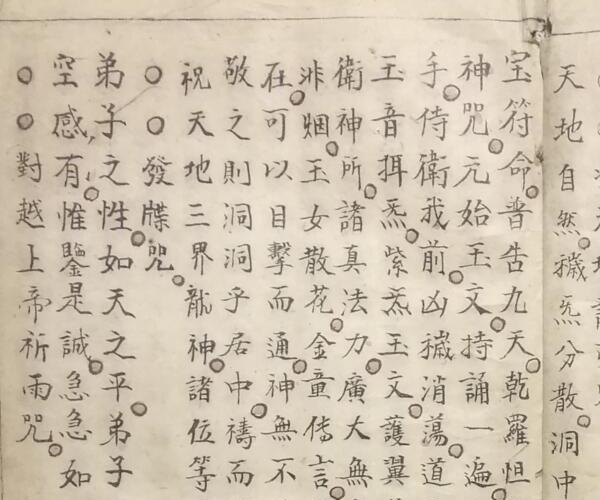 天地自然穢炁分散洞中
宝符命普告九天乾羅怛
神咒元始玉文持誦一遍
手侍衛我前凶穢消蕩道
玉音拜炁紫炁玉文護翼
衛神所諸真法力廣大無
非烟玉女散花金童傳言
在可以目擊而通神無不
敬之則洞洞乎居中禱而
祝天地三界龍神諸位等
○○發牒咒
弟子之性如天之平弟子
空感有惟鑒是誠急急如
○○對越上帝祈雨咒